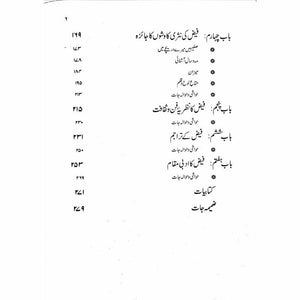 ۲
باب چہارم: فیض کی نثری کاوشوں کا جائزہ ۱۶۹
صلیبیں میرے دریچے میں ۱۷۳
مہ و سال آشنائی ۱۷۸
میزان ۱۸۳
متاع لوح و قلم ۱۹۵
حواشی و حوالہ جات ۲۱۳
باب پنجم: فیض کا نظریۂ فن و ثقافت ۲۱۵
حواشی و حوالہ جات ۲۳۰
باب ششم: فیض کے تراجم ۲۳۱
حواشی و حوالہ جات ۲۵۰
باب ہفتم: فیض کا ادبی مقام ۲۵۳
حواشی و حوالہ جات ۲۶۹
کتابیات ۲۷۱
ضمیمہ جات ۲۷۹